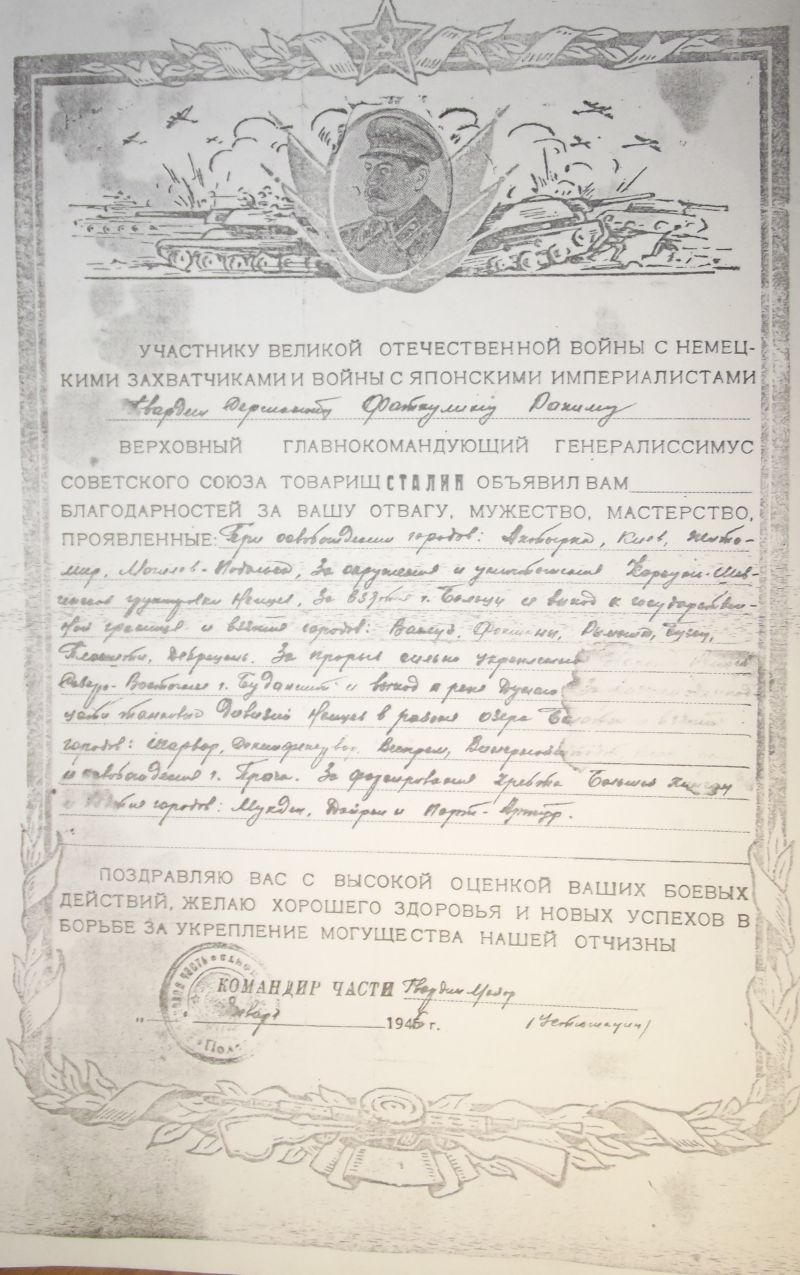 УЧАСТНИКУ ВЕЛИКОЙ ОТЕЧЕСТВЕННОЙ ВОЙНЫ С НЕМЕЦ-
КИМИ ЗАХВАТЧИКАМИ И ВОЙНЫ С ЯПОНСКИМИ ИМПЕРИАЛИСТАМИ
Гвардии Сержанту Фаткулину Рахиму
ВЕРХОВНЫЙ ГЛАВНОКОМАНДУЮЩИЙ ГЕНЕРАЛИССИМУС
СОВЕТСКОГО СОЮЗА ТОВАРИЩ СТАЛИН ОБЪЯВИЛ ВАМ
БЛАГОДАРНОСТЕЙ ЗА ВАШУ ОТВАГУ, МУЖЕСТВО, МАСТЕРСТВО,
ПРОЯВЛЕННЫЕ: При освобождении городов: Ахтырка, Киев, Жито-
мир, Могилев-Подольск, За окружения и уничтожения Корсун-Шев-
группировки Немцев, За взятия г. Бельцы и выход к государствен-
ной границе и взятия городов: Васлуй, Фокшаны, Рымник, Бузеу,
Плоешти, Дебрецень. За прорыв сильно
Северо-Восточнее г. Будапешт и выход к реке Дунай
танковых Дивизий Немцев в районе озера
городов: Шарвар, Веспрем,
и освобождения г. Прага. За форсирования хребта Большой Хинган
городов: Мукден, Дайрен и Порт-Артур.
ПОЗДРАВЛЯЮ ВАС С ВЫСОКОЙ ОЦЕНКОЙ ВАШИХ БОЕВЫХ
ДЕЙСТВИЙ, ЖЕЛАЮ ХОРОШЕГО ЗДОРОВЬЯ И НОВЫХ УСПЕХОВ В
БОРЬБЕ ЗА УКРЕПЛЕНИЕ МОГУЩЕСТВА НАШЕЙ ОТЧИЗНЫ
КОМАНДИР ЧАСТИ Гвардии Майор
Января 1946 г.